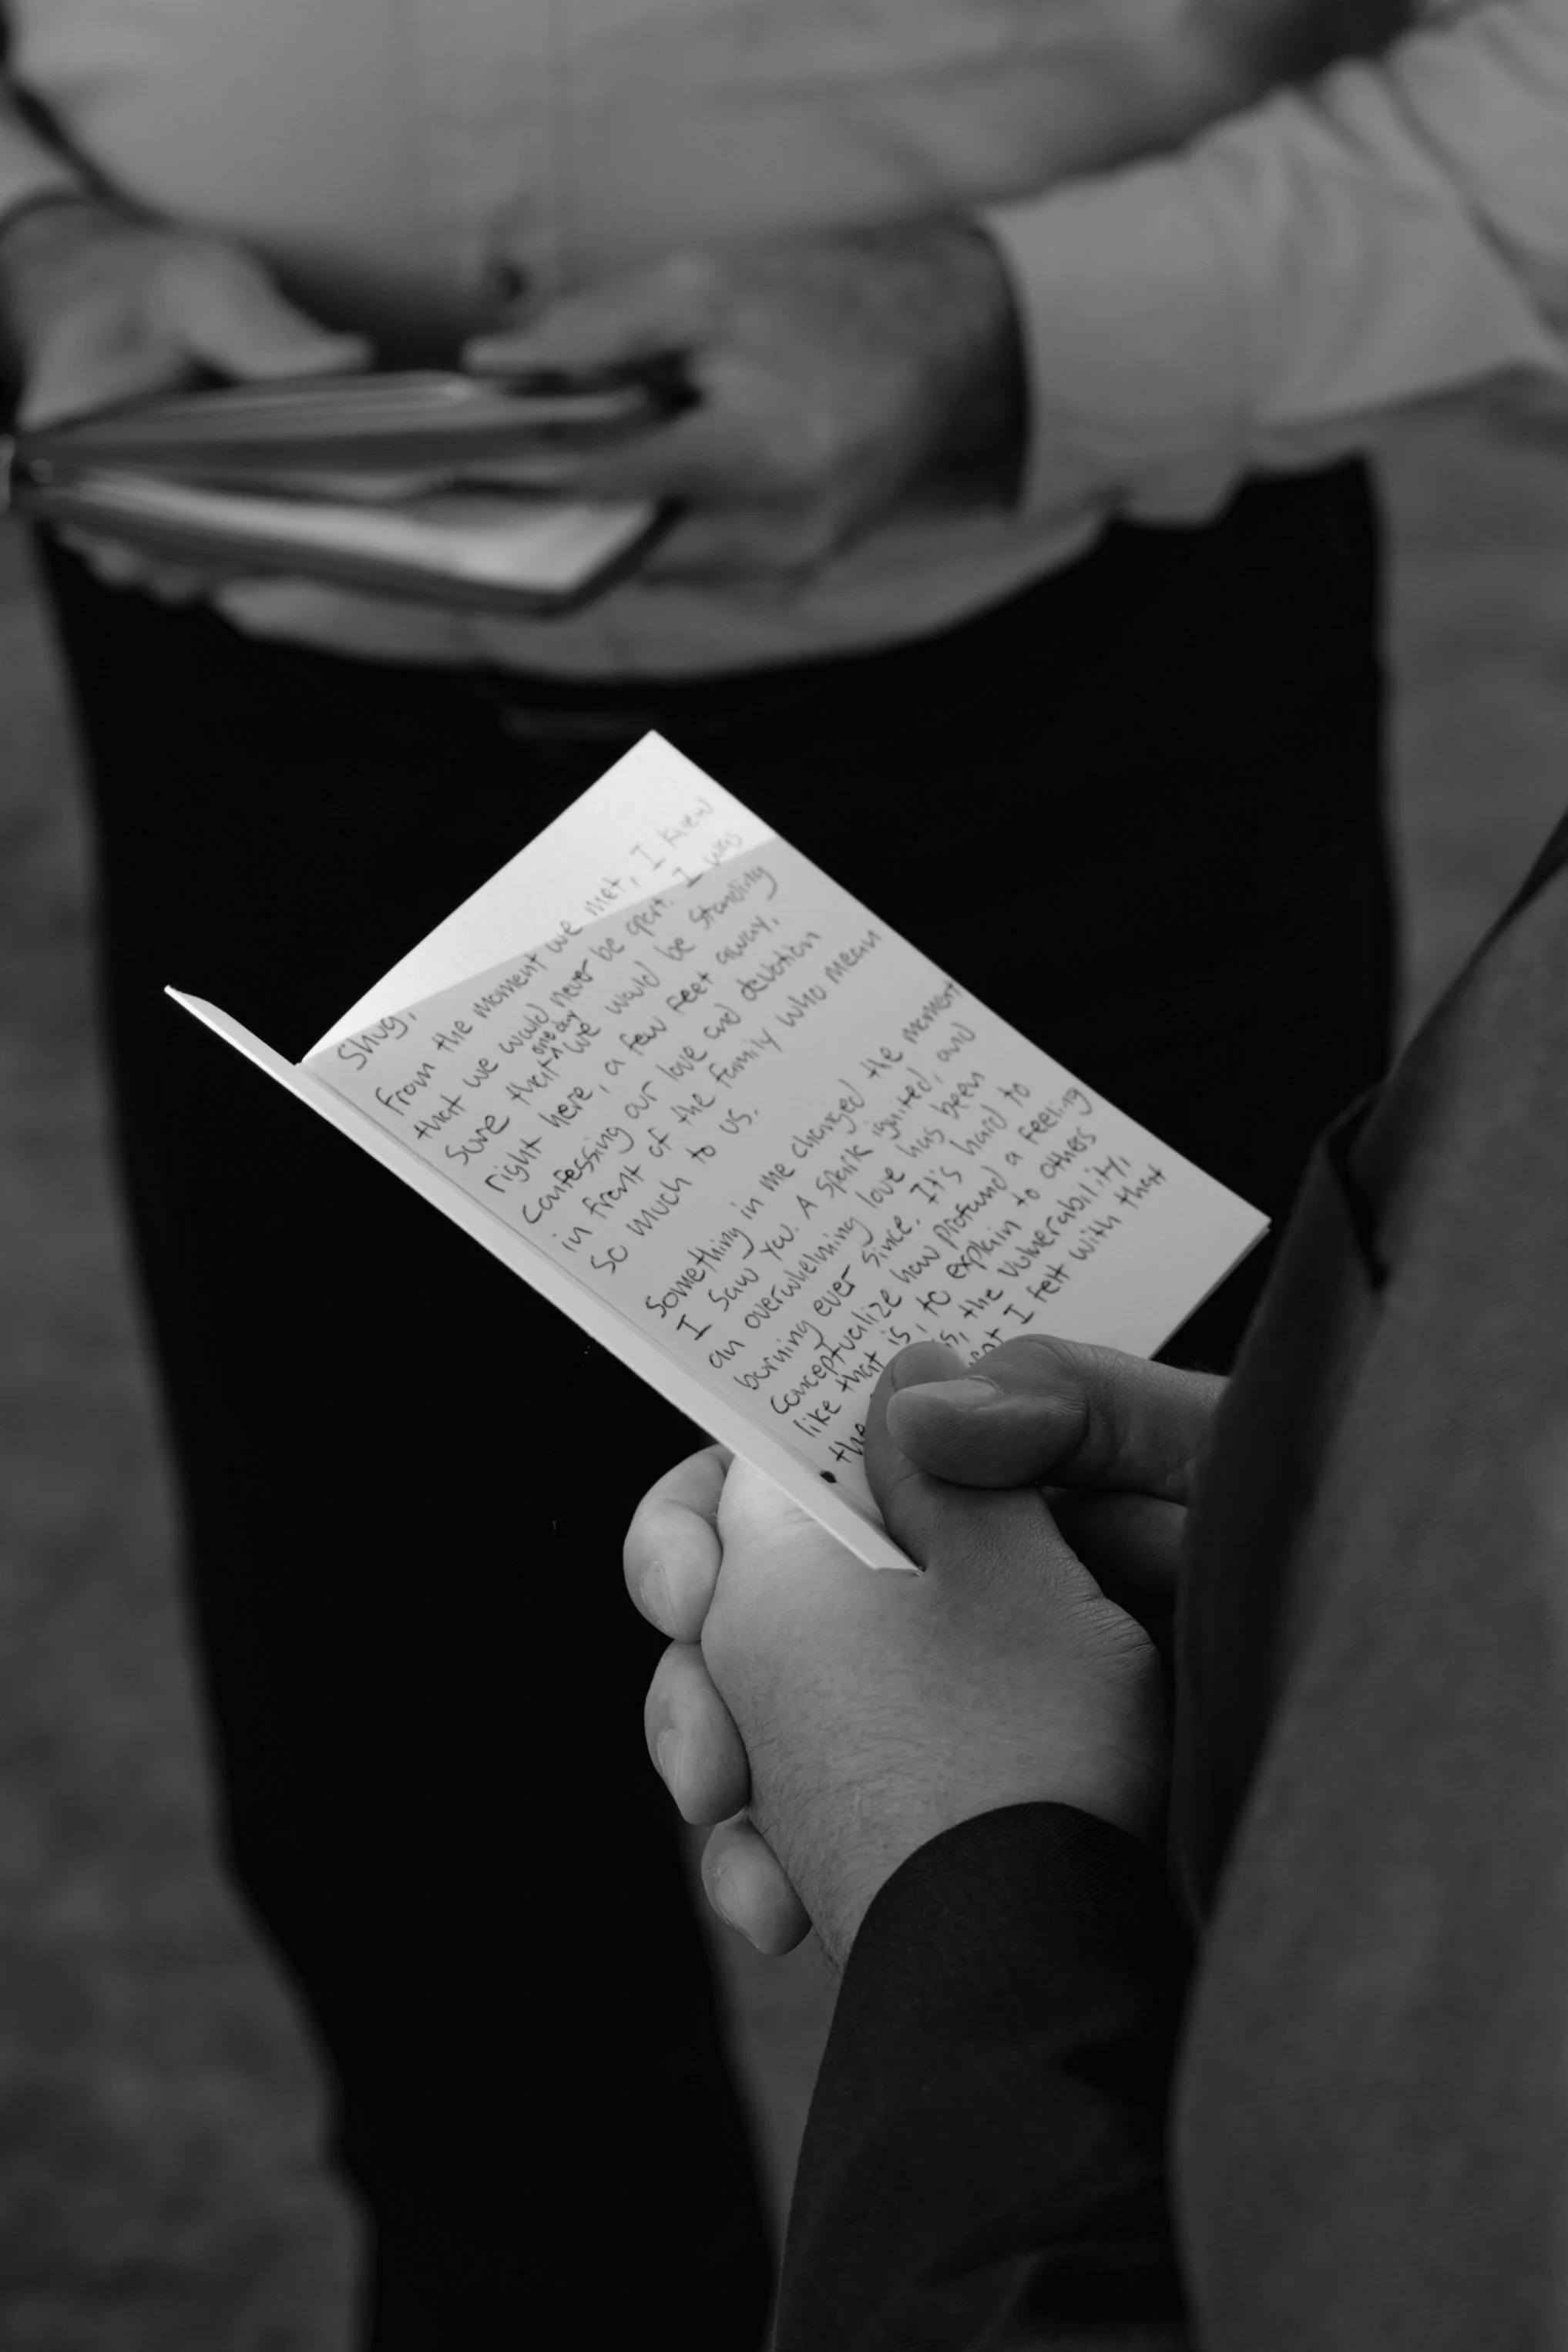 Shug,
From the moment we met, I knew
that we would never be apart. I was
sure that one day we would be standing
right here, a few feet away,
confessing our love and devotion
in front of the family who mean
so much to us.
Something in me changed the moment
I saw you. A spark ignited, and
an overwhelming love has been
burning ever since. It's hard to
conceptualize how profound a feeling
like that is, to explain to others
the the vulnerability,
I felt with that